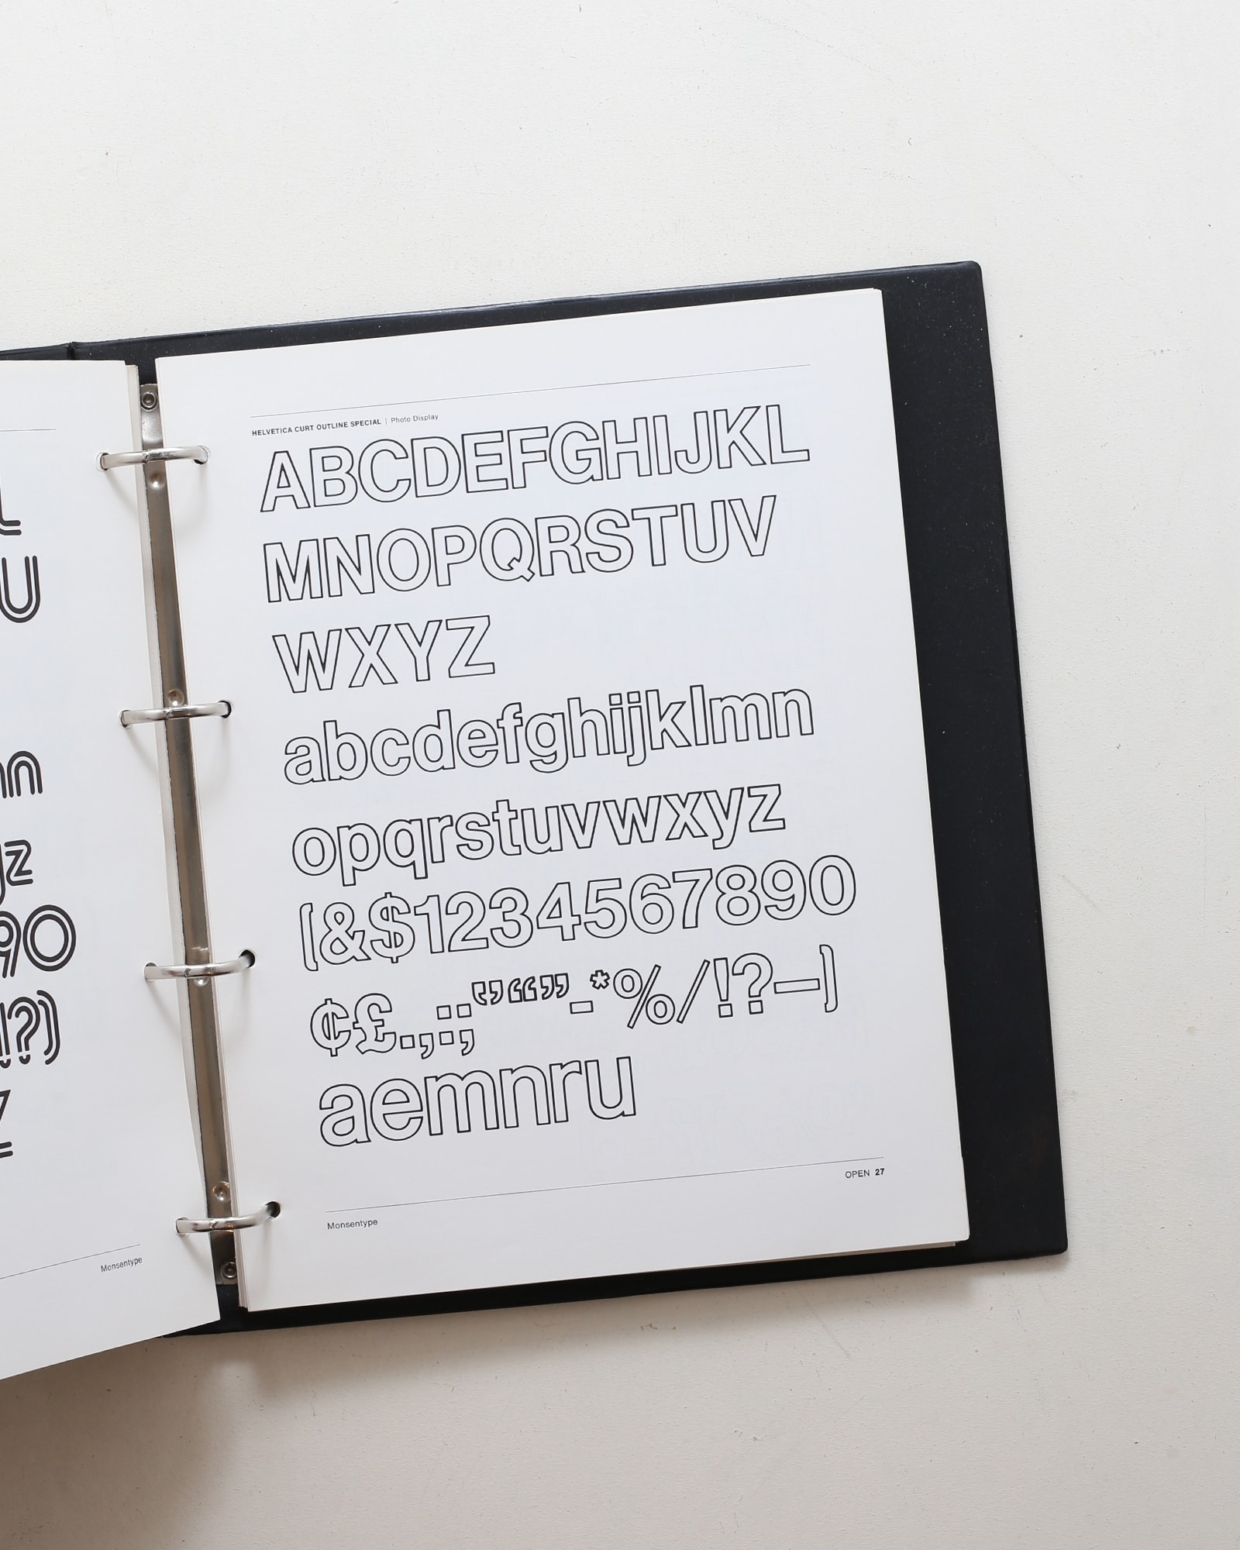 L
U
mn
yz
90
!?)
z
Monsentype
HELVETICA CURT OUTLINE SPECIAL | Photo Display
ABCDEFGHIJKL
MNOPQRSTUV
WXYZ
abcdefghijklmn
opqrstuvwxyz
(&$1234567890
¢£.,:;‘’“”-*%/!?—)
aemnru
OPEN 27
Monsentype